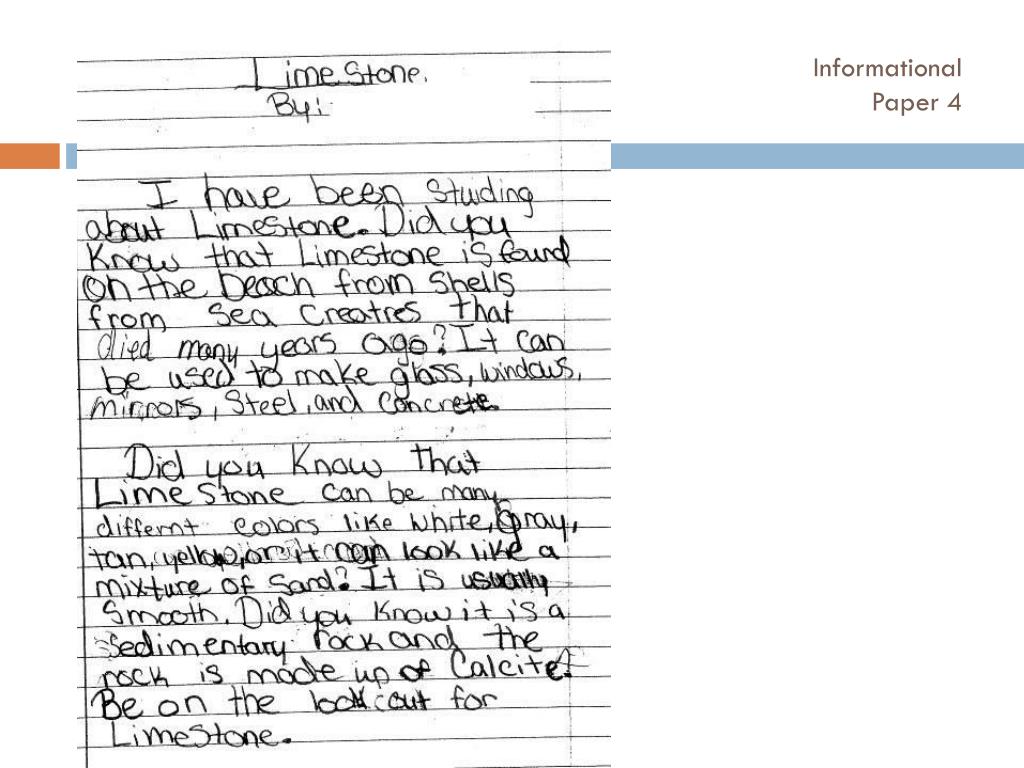 Informational
Paper 4
LimeStone.
By:
I have been Studing
about Limestone. Did you
Know that Limestone is found
on the beach from Shells
from Sea Creatres that
died many years ago? It can
be used to make glass, windows,
mirrors, Steel, and Concrete.
Did you Know that
Lime Stone can be many
differnt colors like white, Gray,
tan, yellow, or it can look like a
mixture of Sand? It is usually
Smooth. Did you Know it is a
Sedimentary rock and the
rock is made up of Calcite?
Be on the lookout for
LimeStone.